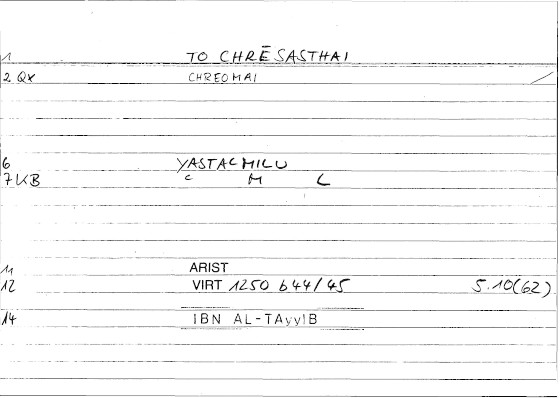 1 TO CHRĒSASTHAI
2 QX CHREOMAI /
6 YASTACMILU
7 KB C M L
11 ARIST
12 VIRT 1250 b44/45 5.10(62)
14 IBN AL-TAyyIB